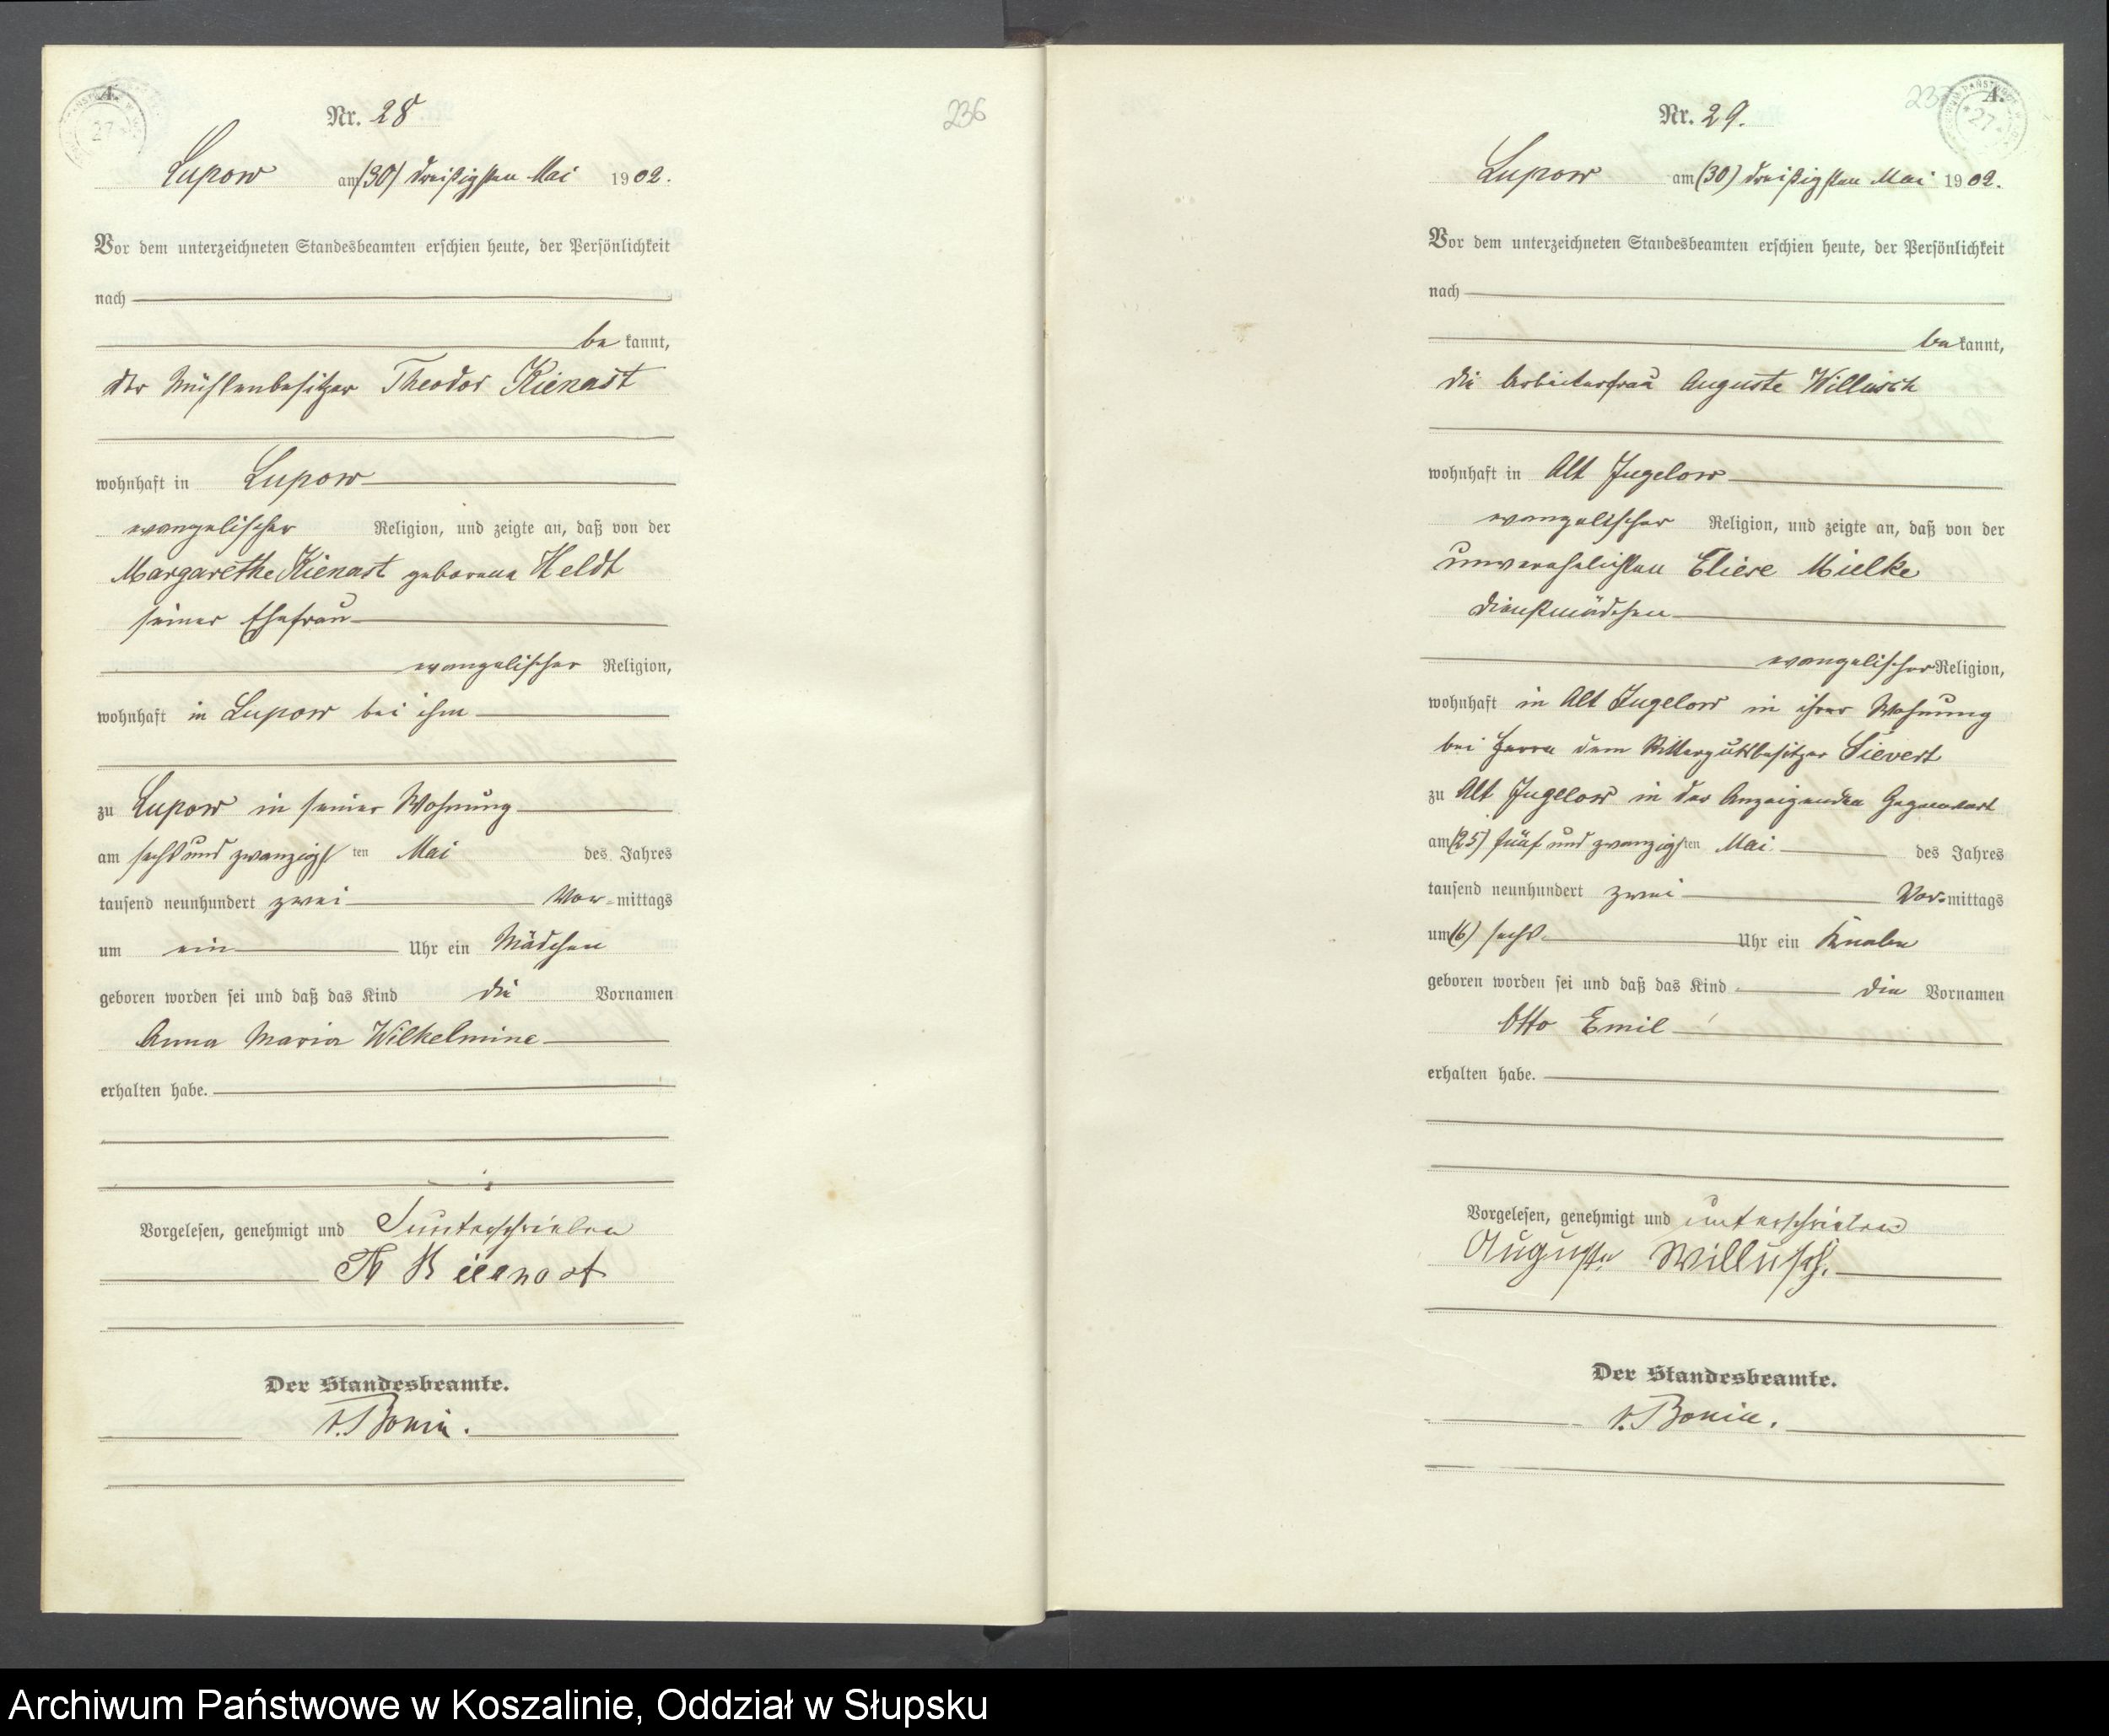 A.
27
Nr. 28
236
Lupow am (30) dreißigsten Mai 1902.
Vor dem unterzeichneten Standesbeamten erschien heute, der Persönlichkeit
nach
be kannt,
der Mühlenbesitzer Theodor Kienast
wohnhaft in Lupow
evangelischer Religion, und zeigte an, daß von der
Margarethe Kienast geborene Heldt
seiner Ehefrau
evangelischer Religion,
wohnhaft in Lupow bei ihm
zu Lupow in seiner Wohnung
am sechs und zwanzigsten Mai des Jahres
tausend neunhundert zwei Vor-mittags
um ein Uhr ein Mädchen
geboren worden sei und daß das Kind die Vornamen
Anna Maria Wilhelmine
erhalten habe.
Vorgelesen, genehmigt und unterschrieben
Th Kienast
Der Standesbeamte.
v. Bonin.
A.
27
Nr. 29.
Lupow am (30) dreißigsten Mai 1902.
Vor dem unterzeichneten Standesbeamten erschien heute, der Persönlichkeit
nach
be kannt,
die Arbeiterfrau Auguste Willusch
wohnhaft in Alt Jugelow
evangelischer Religion, und zeigte an, daß von der
unverehelichten Eliese Mielke
Dienstmädchen
evangelischer Religion,
wohnhaft in Alt Jugelow in ihrer Wohnung
bei Herrn dem Rittergutsbesitzer Sievert
zu Alt Jugelow in der Anzeigenden Gegenwart
am (25) fünf und zwanzigsten Mai des Jahres
tausend neunhundert zwei Vor-mittags
um (6) sechs Uhr ein Knabe
geboren worden sei und daß das Kind die Vornamen
Otto Emil
erhalten habe.
Vorgelesen, genehmigt und unterschrieben
Auguste Willusch.
Der Standesbeamte.
v. Bonin.
Archiwum Państwowe w Koszalinie, Oddział w Słupsku